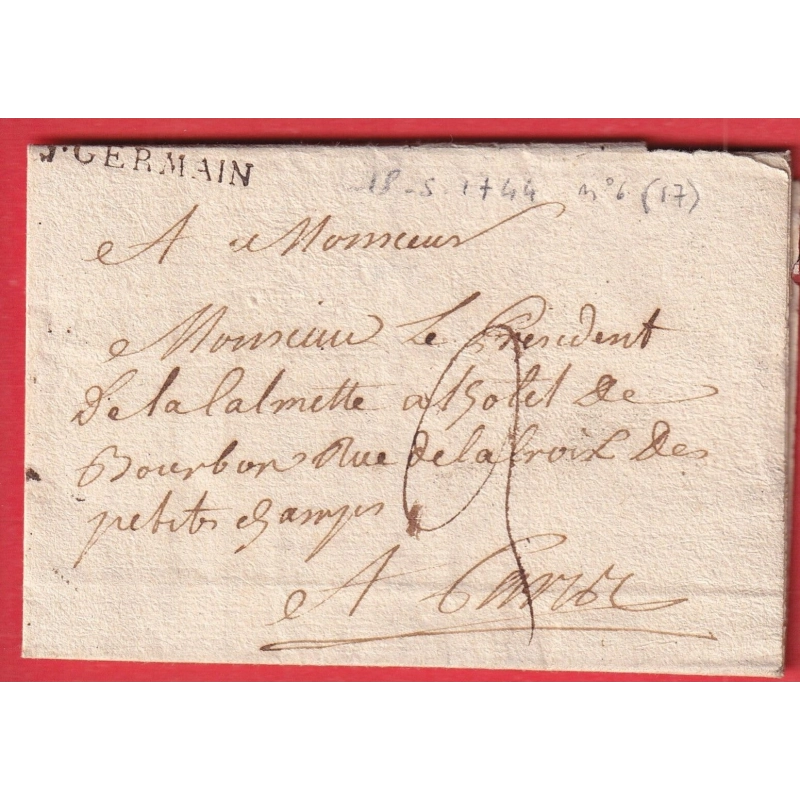 S.GERMAIN
18-5-1744 n°6 (17)
A Monsieur
Monsieur le President
De la Calmette a lhotel De
Bourbon Rue de la Croix Des
petits champs
A Paris